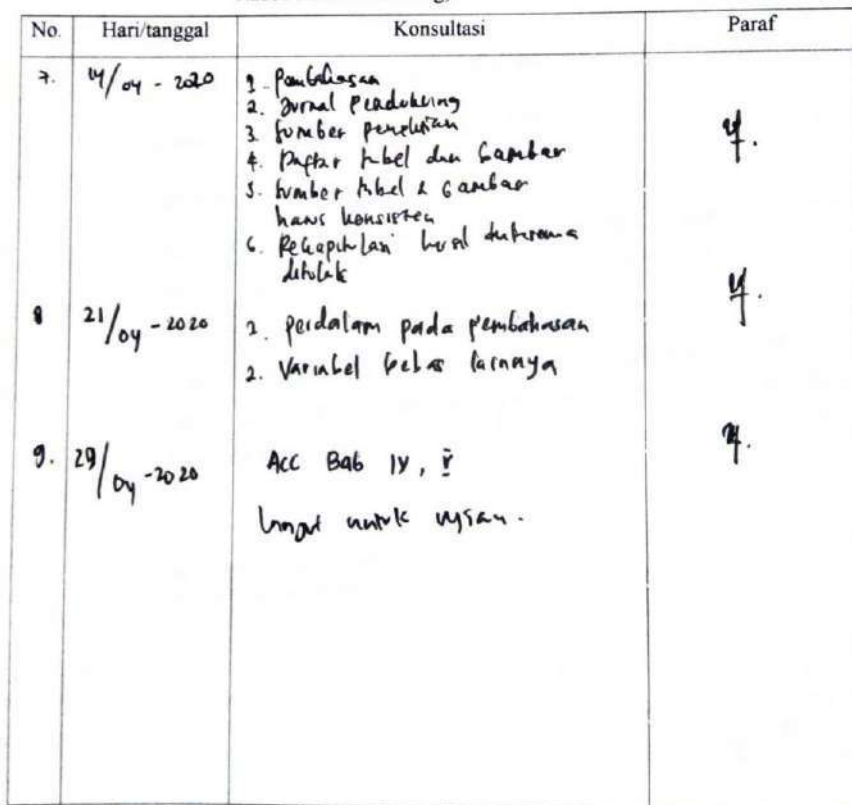 No. Hari/tanggal Konsultasi Paraf
7. 14/04 - 2020
1. Pembahasan
2. Jurnal Pendukung
3. Sumber penelitian
4. Daftar tabel dan Gambar
5. Sumber tabel & Gambar
harus konsisten
6. Rekapitulasi hasil diterima
ditolak
8 21/04 - 2020
1. perdalam pada pembahasan
2. Variabel bebas lainnya
9. 29/04 - 2020
Acc Bab IV, V
untuk ujian.